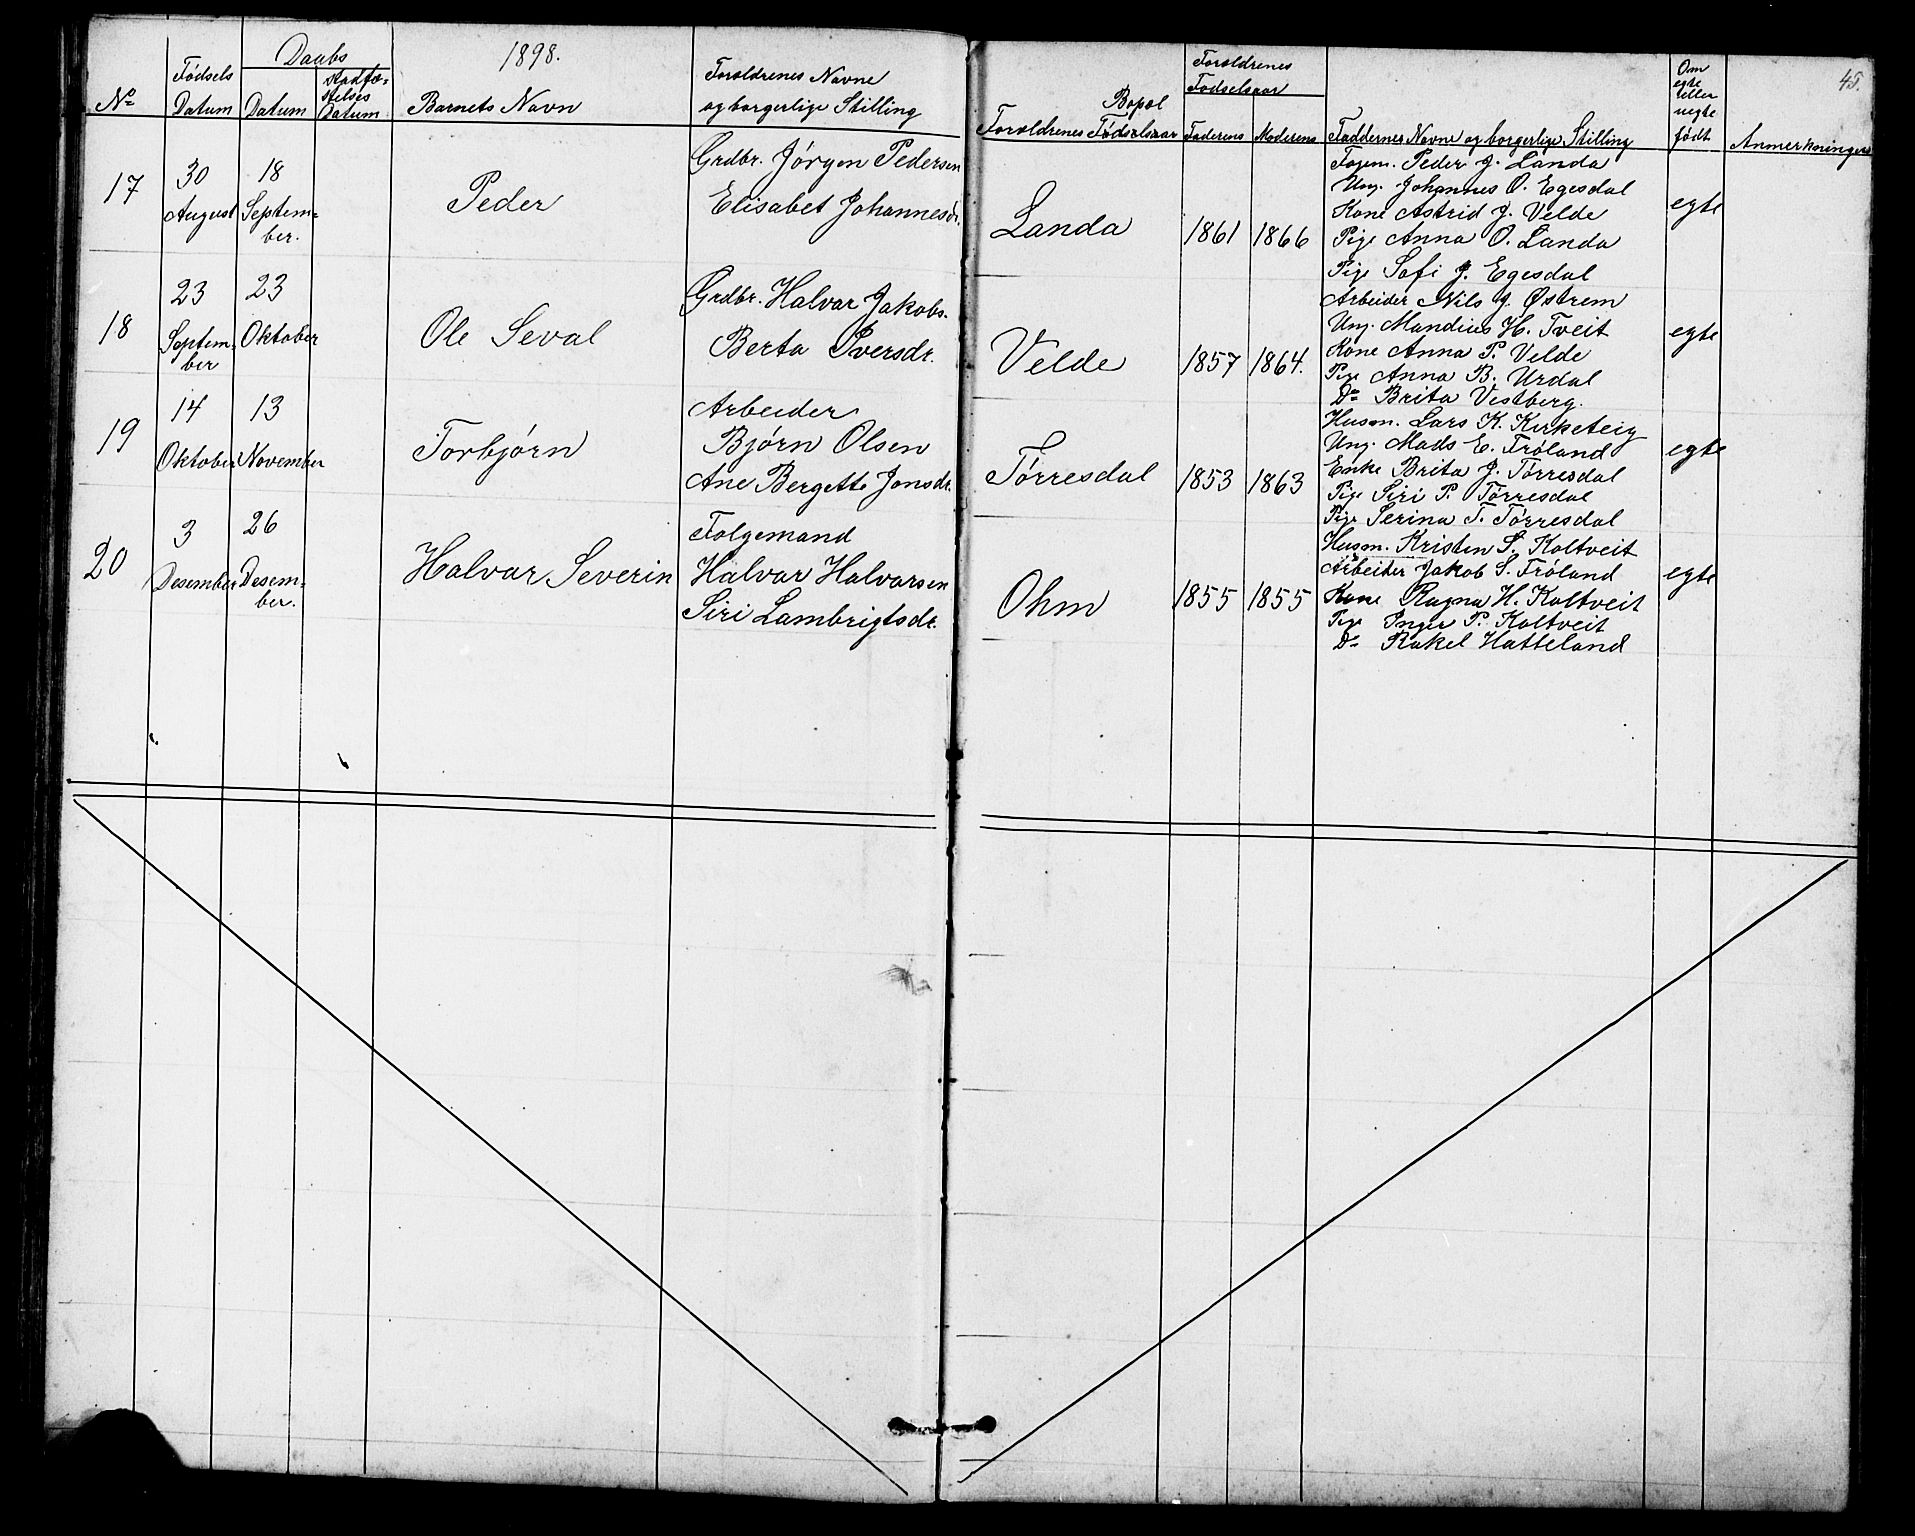 1898.
45.
No
Fødsels
Datum
Daabs
Datum
Stadfæ-
stelses
Datum
Barnets Navn
Forældrenes Navne
og borgerlige Stilling
Bopæl
Forældrenes Fødselsaar
Forældrenes
Fødselsaar
Faderens
Moderens
Faddernes Navne og borgerlige Stilling
Om
egte
eller
uegte
født
Anmerkninger
17
30
August
18
Septem-
ber.
Peder
Grdbr. Jørgen Pedersen
Elisabet Johannesdr.
Landa
1861
1866
Fogem. Peder J. Landa
Ung. Johannes O. Egesdal
Kone Astrid J. Velde
Pige Anna O. Landa
Pige Sofi J. Egesdal
egte
18
23
Septem-
ber
23
Oktober
Ole Seval
Grdbr. Halvar Jakobs.
Berta Iversdr.
Velde
1857
1864.
Arbeider Nils J. Østrem
Ung. Mandius H. Tveit
Kone Anna P. Velde
Pige Anna B. Urdal
Do Brita Vestberg.
egte
19
14
Oktober
13
November
Torbjørn
Arbeider
Bjørn Olsen
Ane Bergette Jonsdr.
Tørresdal
1853
1863
Husm. Lars K. Kirketeig
Ung. Mads E. Frøland
Enke Brita J. Tørresdal
Pige Siri P. Tørresdal
Pige Serina T. Tørresdal
egte
20
3
Desember
26
Desem-
ber.
Halvar Severin
Følgemand
Halvar Halvarsen
Siri Lambrigtsdr.
Ohm
1855
1855
Husm. Kristen S. Koltveit
Arbeider Jakob S. Frøland
Kone Ragna H. Koltveit
Pige Inger P. Koltveit
Do Rakel Hatteland
egte